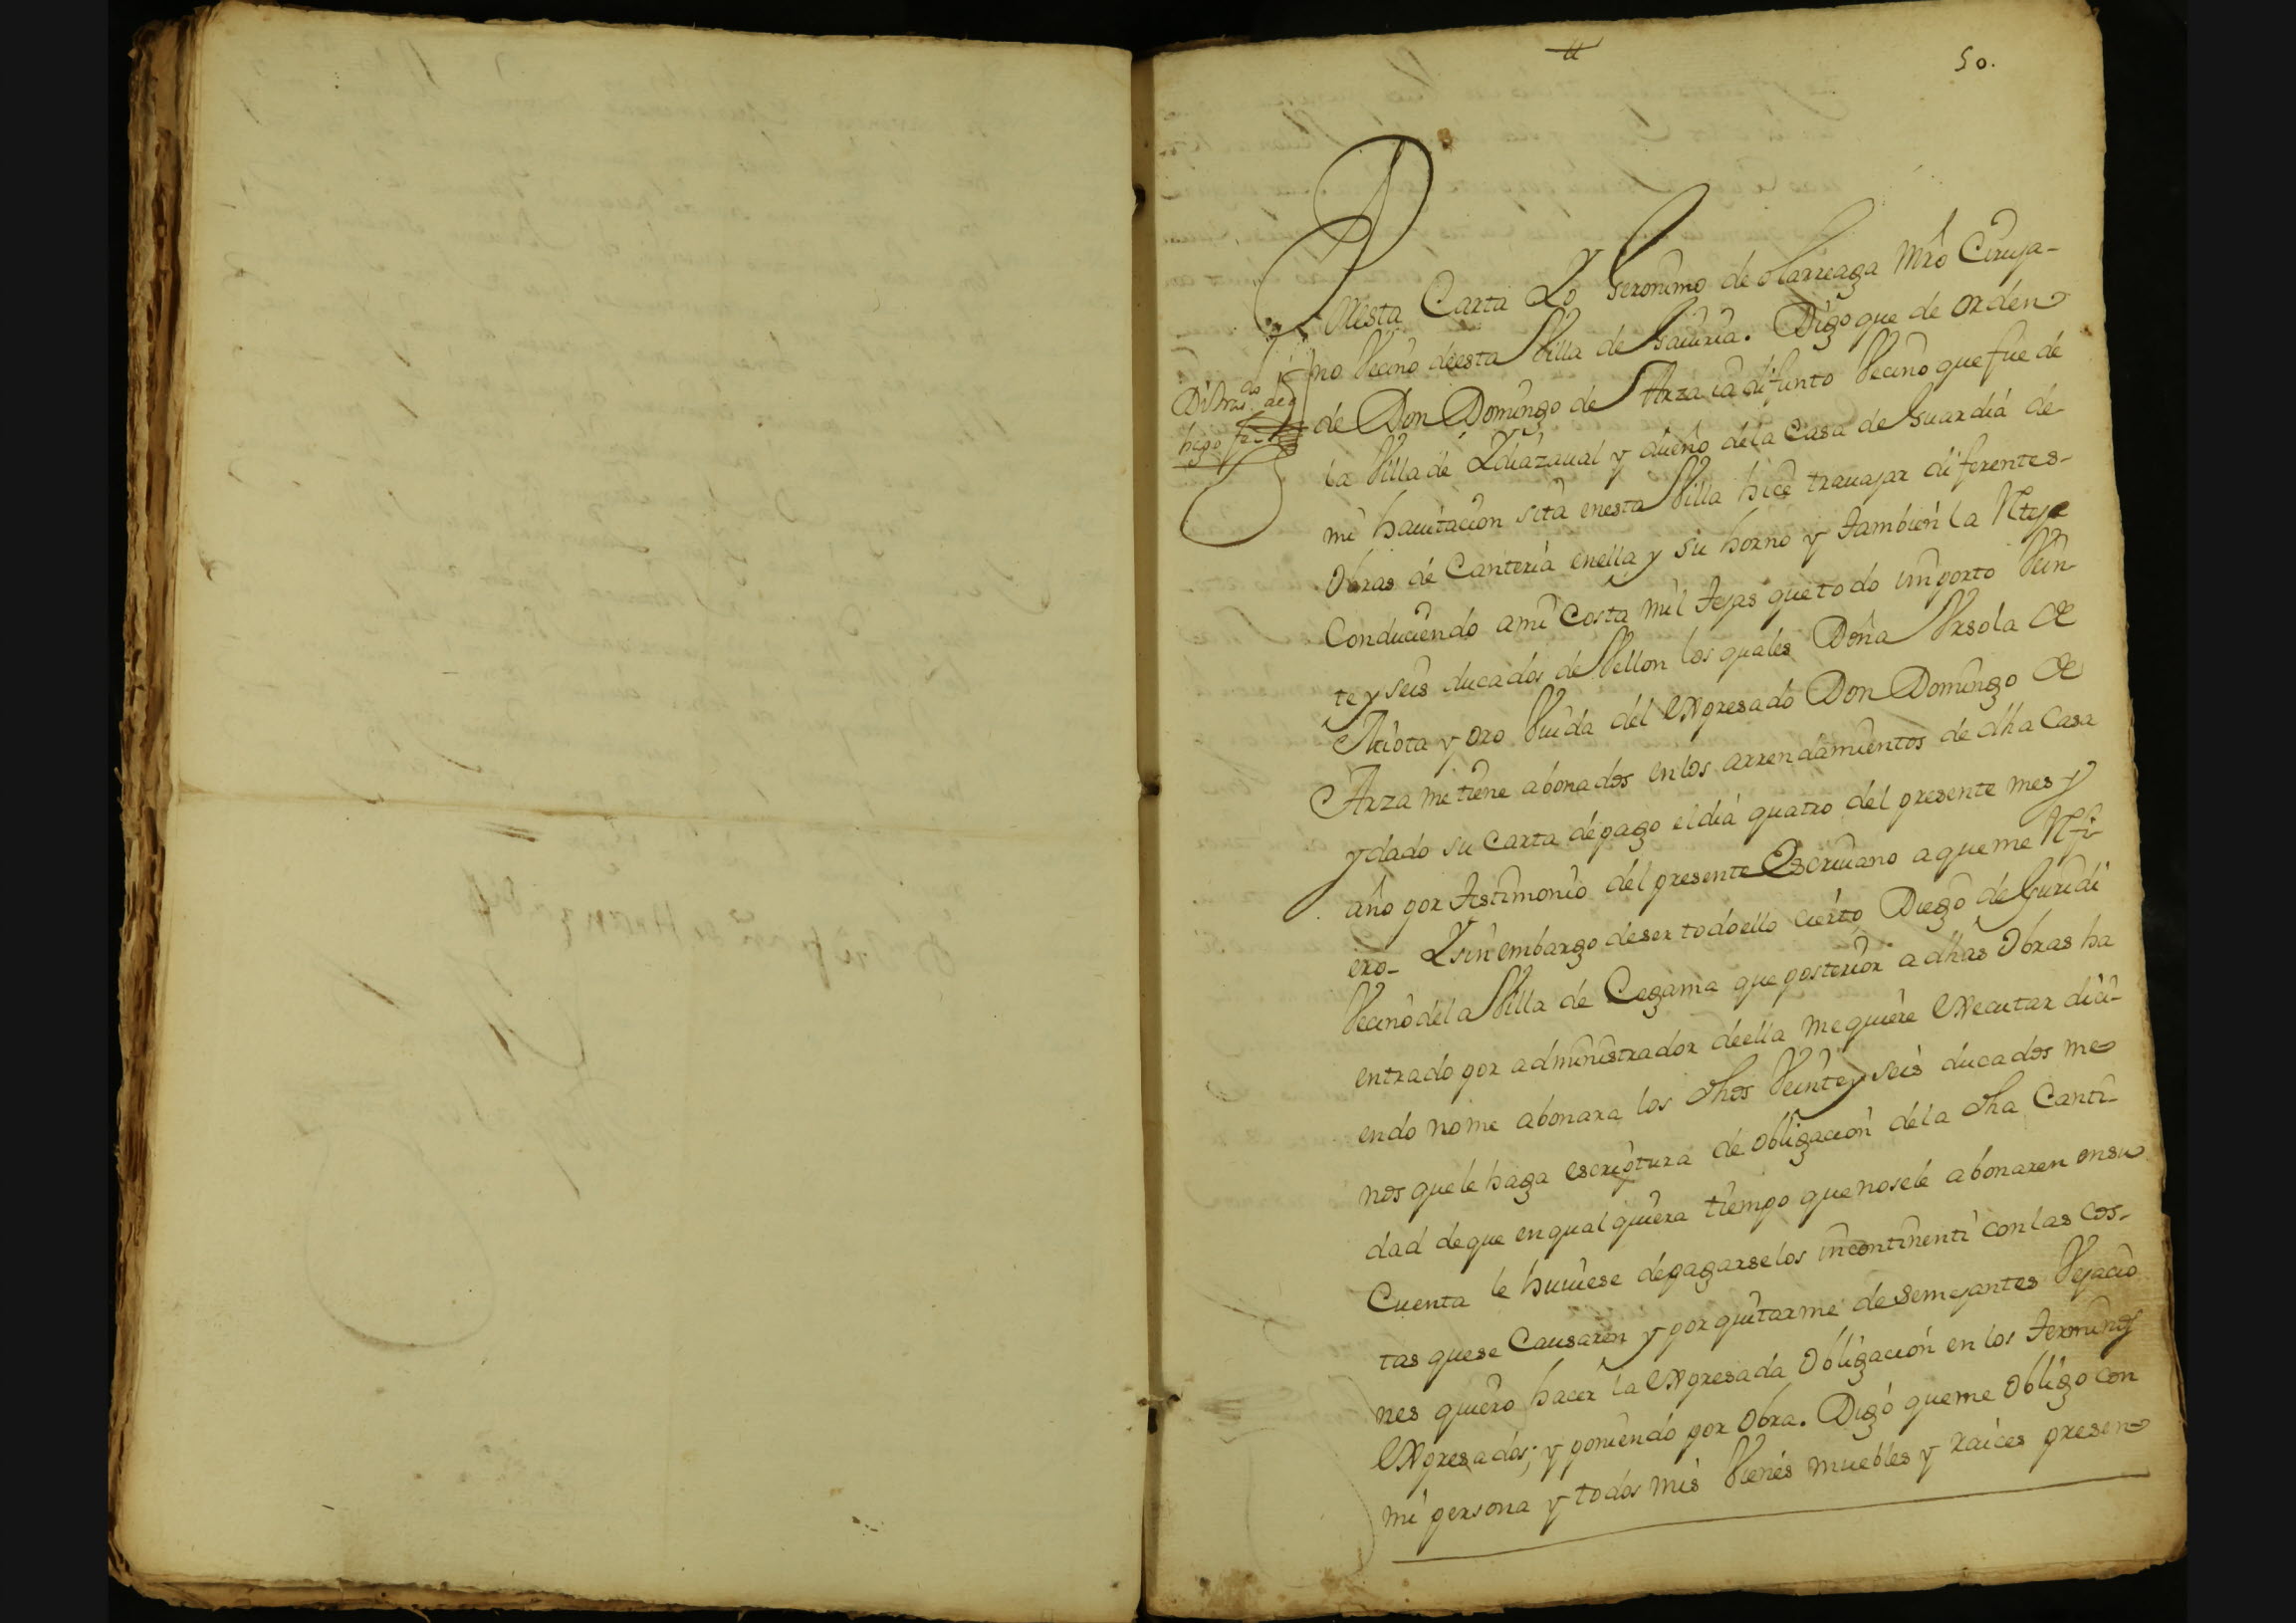 50.
En esta Carta Yo Geronimo de Olarreaga Mro Ciruja-
no Vecino deesta Villa de Gauiria. Digo que de orden
de Don Domingo de Arza ia difunto Vecino que fue de
la Villa de Ydiazaual y dueño dela Casa de Guardia de
mi hauitacion sita enesta Villa hice trauajar diferentes
Obras de Canteria enella y su horno y tambien la Rteje
Conduciendo ami costa mil tejas que todo importo Vein
te y seis ducados de Vellon los quales Doña Vrsola de
Atiota y oro Viuda del expresado Don Domingo de
Arza me tiene abonados enlos arrendamientos de dha Casa
y dado su Carta de pago el dia quatro del presente mes y
año por testimonio del presente Escriuano aqueme Rfi-
ero- Y sin embargo deser todoello cierto Diego de Guridi
Vecino dela Villa de Cegama que posterior a dhas Obras ha
entrado por administrador deella mequiere executar dici-
endo nome abonara los dhos Veinte y seis ducados me
nos quele haga escriptura de obligacion dela dha Canti-
dad deque en qualquiera tiempo quenosele abonaren ensu
Cuenta le huuiese depagarselos incontinenti con las cos-
tas quese Causaren y por quitarme de semejantes Vejacio
nes quiero hacer la expresada Obligacion en los terminos
expresados; y poniendo por Obra. Digo queme Obligo con
mi persona y todos mis Vienes muebles y raices presen